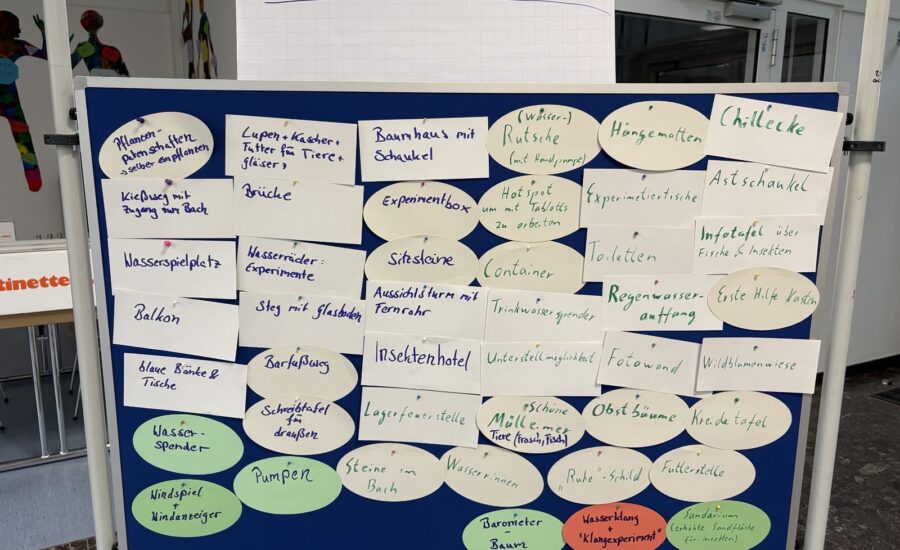 Pflanzen-
patenschaften
→ selber einpflanzen
Lupen + Kascher,
Futter für Tiere +
gläser?
Baumhaus mit
Schaukel
(Wasser-)
Rutsche
(mit Handpumpe)
Hängematten
Chillecke
Kießweg mit
Zugang zum Bach
Brücke
Experimentbox
Hotspot
um mit Tabletts
zu arbeiten
Experimetiertische
Astschaukel
Wasserspielplatz
Wasserräder:
Experimente
Sitzsteine
Container
Toiletten
Infotafel über
Fische & Insekten
tinette
Balkon
Steg mit Glasboden
Aussichtsturm mit
Fernrohr
Trinkwasserspender
Regenwasser-
auffang
Erste Hilfe Kasten
blaue Bänke &
Tische
Barfußweg
Insektenhotel
Unterstellmöglichkeit
Fotowand
Wildblumenwiese
Schreibtafel
für
draußen
Lagerfeuerstelle
Schöne
Mülleimer
Tiere (Frosch, Fisch)
Obstbäume
Kreidetafel
Wasser-
spender
Pumpen
Steine im
Bach
Wasserrinnen
"Ruhe"-Schild
Futterstelle
Windspiel
+
Windanzeiger
Barometer-
Baum
Wasserklang
+ "Klangexperiment"
Sandarium
(erhöhte Sandfläche
für Insekten)